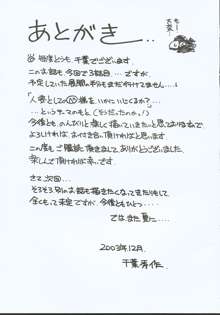 あとがき...
毎度どうも 千葉でございます。
この話も 今回で3話目....ですが、
予定していた展開の半分もまだ行けてません....!
....というテーマのもと(そうだったのか!)
今後とも のんびりと 楽しく描いていきたいと思っておりますので
よろしければ お付き合い頂ければと思います
この度も ご購読 頂きまして ありがとうございました。
楽しんで頂ければ幸いです。
さて、次回...
そろそろ別の話も描きたくなってきたりもして
全くもって未定ですが 今後ともひとつ....
ではまた夏に....
2003年12月.
千葉秀作